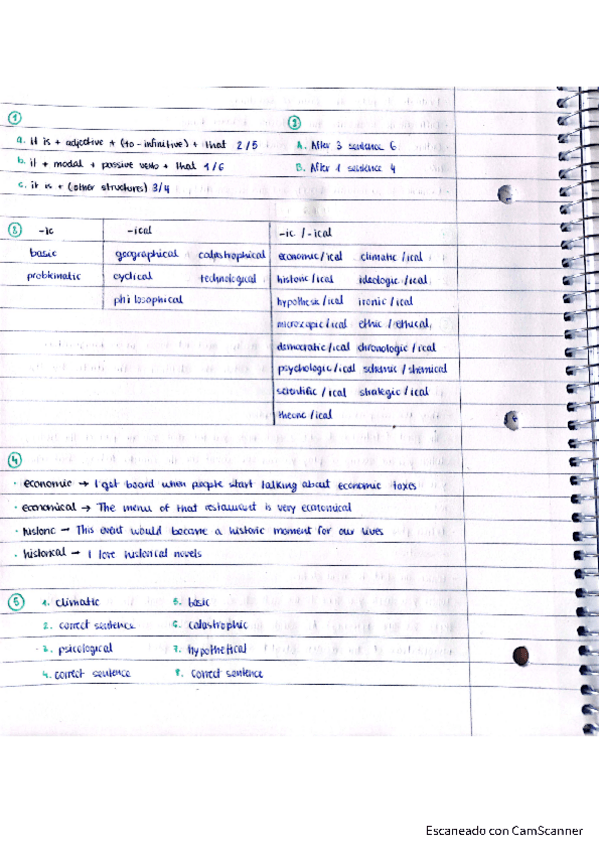 1
a. it is + adjective + (to - infinitive) + that 2/5
b. it + modal + passive verb + that 1/6
c. it is + (other structures) 3/4
2
A. After 3 sentence 6
B. After 1 sentence 4
3 -ic -ical -ic / -ical
basic geographical catastrophical economic / ical climatic / ical
problematic cyclical technological historic / ical ideologic / ical
philosophical hypothesic / ical ironic / ical
microscopic / ical ethic / ethical
democratic / ical chronologic / ical
psychologic / ical
scientific / ical strategic / ical
theoric / ical
4
· economic → I get board when people start talking about economic taxes
· economical → The menu of that restaurant is very economical
· historic → This event would became a historic moment for our lives
· historical → I love historical novels
5 1. climatic 5. basic
2. correct sentence 6. catastrophic
3. psicological 7. hypothetical
4. correct sentence 8. correct sentence
Escaneado con CamScanner